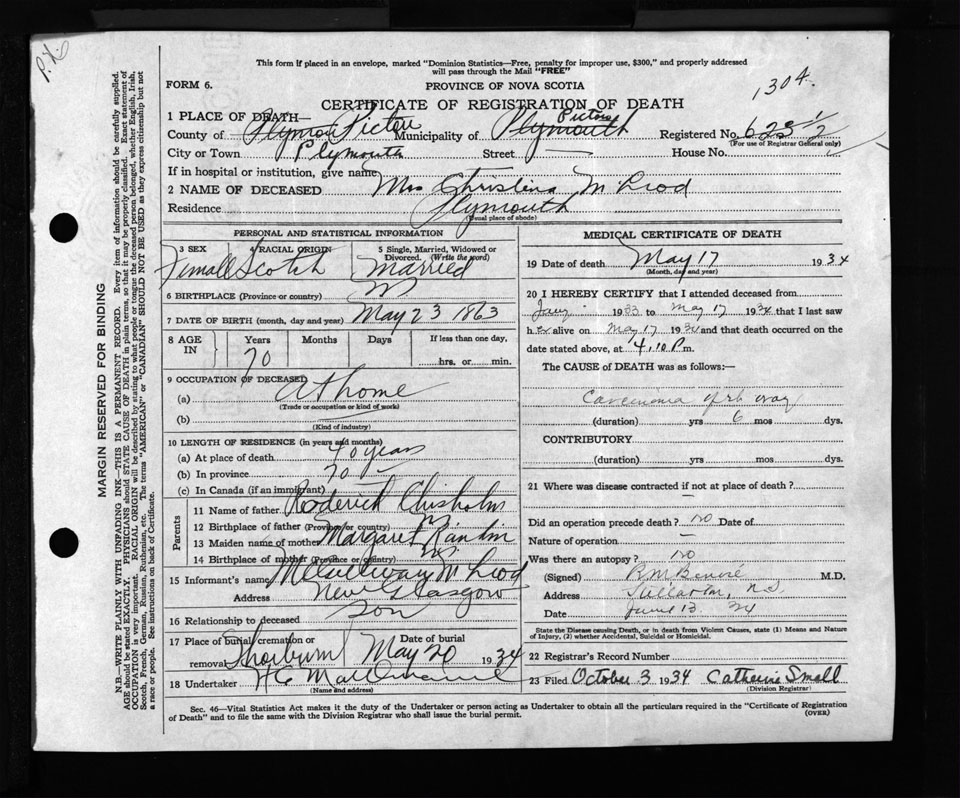 P.H.
This form if placed in an envelope, marked "Dominion Statistics—Free, penalty for improper use, $300," and properly addressed
will pass through the Mail "FREE"
1304.
FORM 6.
PROVINCE OF NOVA SCOTIA
CERTIFICATE OF REGISTRATION OF DEATH
1 PLACE OF DEATH
County of Plymou Pictou Municipality of Plymouth Pictou Registered No. 623 1/2
(For use of Registrar General only)
City or Town Plymouth Street — House No.
If in hospital or institution, give name
2 NAME OF DECEASED Mrs Christina McLeod
Residence Plymouth
(Usual place of abode)
PERSONAL AND STATISTICAL INFORMATION
3 SEX Female
4 RACIAL ORIGIN Scotch
5 Single, Married, Widowed or Divorced. (Write the word) Married
6 BIRTHPLACE (Province or country) N.S.
7 DATE OF BIRTH (month, day and year) May 23 1863
8 AGE IN Years 70 Months Days If less than one day, hrs. or min.
9 OCCUPATION OF DECEASED
(a) At home
(Trade or occupation or kind of work)
(b)
(Kind of industry)
10 LENGTH OF RESIDENCE (in years and months)
(a) At place of death 40 years
(b) In province 70 —
(c) In Canada (if an immigrant)
Parents
11 Name of father Roderick Chisholm
12 Birthplace of father (Province or country) N.S.
13 Maiden name of mother Margaret
14 Birthplace of mother (Province or country) N.S.
15 Informant's name McLeod
Address New Glasgow
16 Relationship to deceased Son
17 Place of burial, cremation or removal Thorburn Date of burial May 20 1934
18 Undertaker
(Name and address)
MEDICAL CERTIFICATE OF DEATH
19 Date of death May 17 1934
(Month, day and year)
20 I HEREBY CERTIFY that I attended deceased from
Jany 1933 to May 17 1934 that I last saw
her alive on May 17 1934 and that death occurred on
date stated above, at 4.10 P m.
The CAUSE of DEATH was as follows:—
(duration) yrs 6 mos dys.
CONTRIBUTORY
(duration) yrs mos dys.
21 Where was disease contracted if not at place of death?
—
Did an operation precede death? no Date of
Nature of operation —
Was there an autopsy? no
(Signed) M.D.
Address Stellarton, N.S.
Date June 13 34
State the Disease causing Death, or in death from Violent Causes, state (1) Means and Nature
of Injury, (2) whether Accidental, Suicidal or Homicidal.
22 Registrar's Record Number
23 Filed October 3 1934 Catherine Small
(Division Registrar)
Sec. 46—Vital Statistics Act makes it the duty of the Undertaker or person acting as Undertaker to obtain all the particulars required in the "Certificate of Registration
of Death" and to file the same with the Division Registrar who shall issue the burial permit.
(OVER)
MARGIN RESERVED FOR BINDING
N.B.—WRITE PLAINLY WITH UNFADING INK—THIS IS A PERMANENT RECORD. Every item of information should be carefully supplied.
AGE should be stated EXACTLY. PHYSICIANS should STATE CAUSE OF DEATH in plain terms, so that it may be properly classified. Exact statement of
OCCUPATION is very important. RACIAL ORIGIN will be described by stating to what people or tongue the deceased person belonged, whether English, Irish,
Scotch, French, German, Russian, Ruthenian, etc. The terms "AMERICAN" or "CANADIAN" SHOULD NOT BE USED as they express citizenship but not
a race or people. See instructions on back of Certificate.